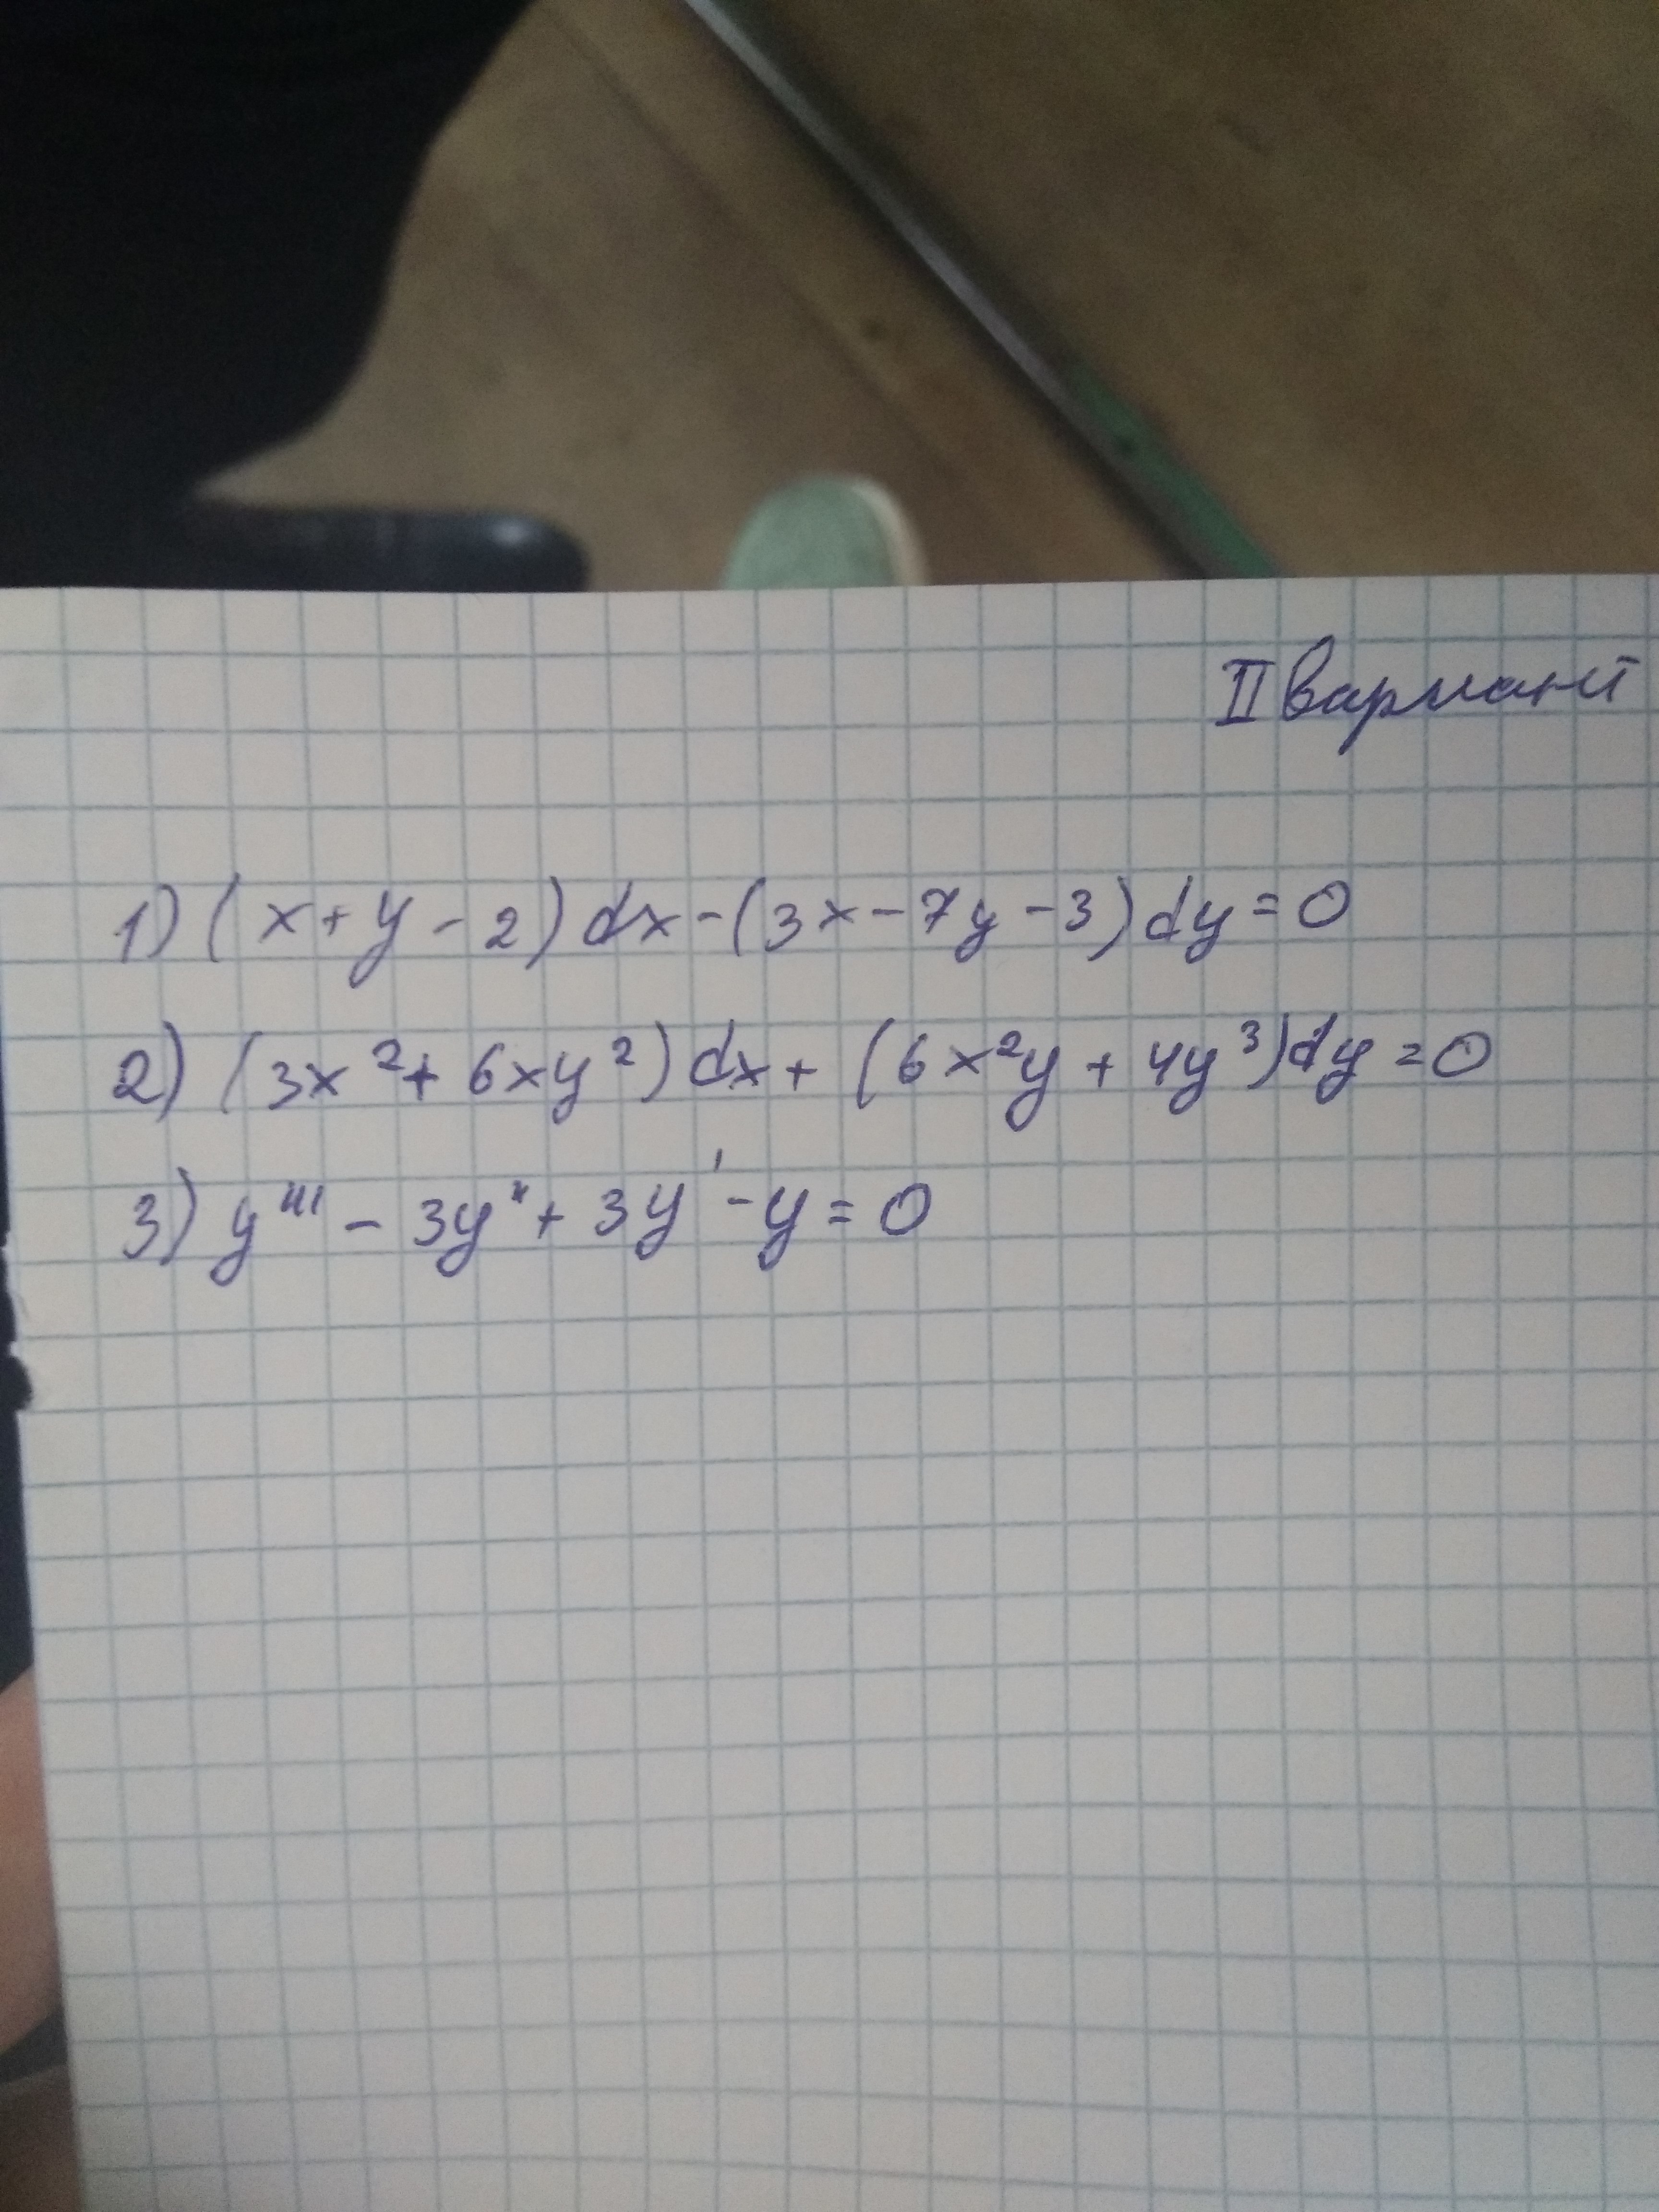 II вариант
1) (x+y-2)dx-(3x-7y-3)dy=0
2) (3x²+6xy²)dx+(6x²y+4y³)dy=0
3) y'''-3y''+3y'-y=0